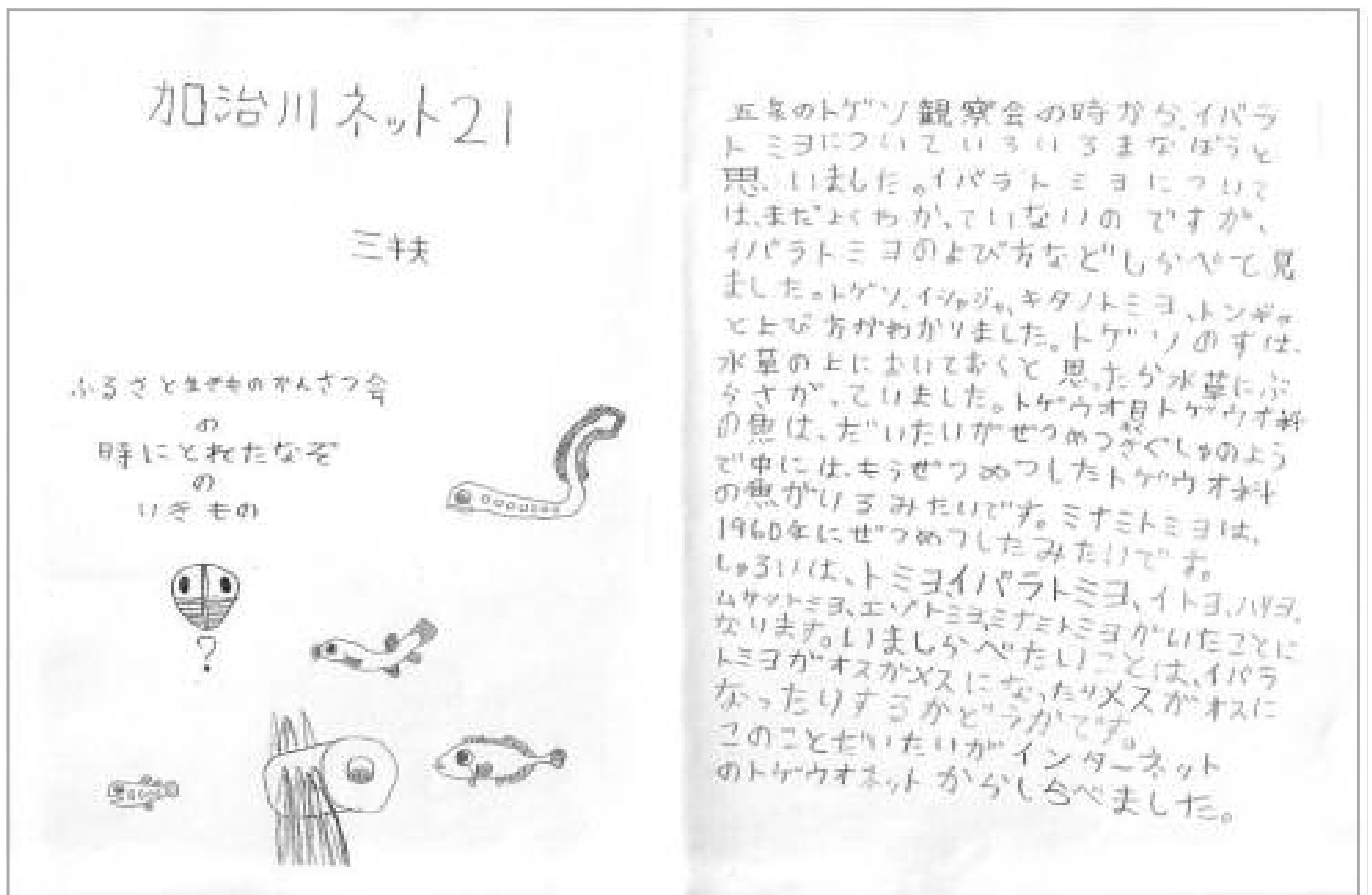 加治川ネット21
ふるさと生きものかんさつ会
の
時にとれたなぞ
の
いきもの
?
五年のトゲソ観察会の時から、イバラ
トミヨについていろいろまなぼうと
思いました。イバラトミヨについて
は、まだよくわかっていないのですが、
イバラトミヨのよび方などしらべて見
ました。トゲソ、イシャジャ、キタノトミヨ、トンギョ
とよび方がわかりました。トゲソのすは、
水草の上においておくと思ったら水草にぶ
らさがっていました。トゲウオ目トゲウオ科
の魚は、だいたいがぜつめつきぐしゅのよう
で中には、もうぜつめつしたトゲウオ科
の魚がいるみたいです。ミナミトミヨは、
1960年にぜつめつしたみたいです。
しゅるいは、トミヨ、イバラトミヨ、イトヨ、ハリヨ、
ムサシトミヨ、エゾトミヨ、ミナミトミヨがいたことに
なります。いましらべたいことは、イバラ
トミヨがオスがメスになったりメスがオスに
なったりするかどうかです。
このことだいたいがインターネット
のトゲウオネットからしらべました。